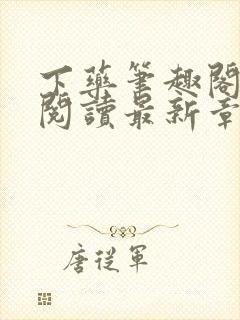 下藥筆趣閣
閱讀最新章
唐從軍